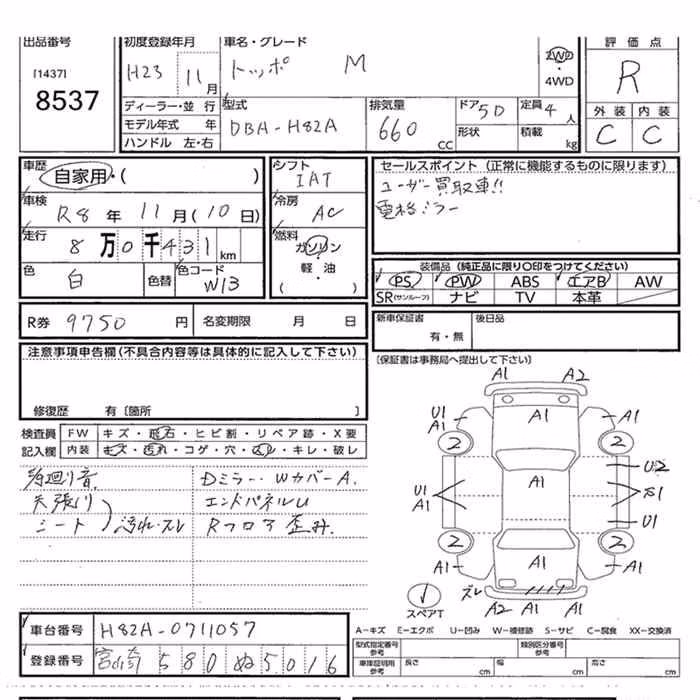 出品番号 初度登録年月 車名・グレード 評価点
[1437] H23 11月 トッポ M 2WD・4WD R
8537
ディーラー・並行 型式 排気量 ドア 5D 定員 4人 外装 内装
モデル年式 年 DBA-H82A 660 CC 形状 積載 kg C C
ハンドル 左・右
車歴 自家用・( ) シフト IAT セールスポイント (正常に機能するものに限ります)
車検 R8年11月(10日) 冷房 AC ユーザー買取車!!
電格ミラー
走行 8万0千431km 燃料 ガソリン・軽・油 ( )
色 白 色替 色コード W13
装備品 (純正品に限り○印をつけてください)
PS PW ABS エアB AW
SR(サンルーフ) ナビ TV 本革
R券 9750円 名変期限 月 日 新車保証書 有・無 後日品
注意事項申告欄(不具合内容等は具体的に記入して下さい) (保証書は事務局へ提出して下さい)
修復歴 有〔箇所 〕
検査員 FW キズ・飛石・ヒビ割・リペア跡・X要
記入欄 内装 キズ・汚れ・コゲ・穴・スレ・キレ・破レ
Dミラー・WカバーA.
天張り エンドパネルU
シート 汚れ・スレ Rフロア歪み.
A1 A2
U1 A1 A1 A1
2 2
U2
U1 A1 A1 U1
2 2
A1 A1 A1
スペアT A2 A1 A1
車台番号 H82A-0711057
登録番号 宮崎 580 ぬ 5016
A-キズ E-エクボ U-凹み W-補修跡 S-サビ C-腐食 XX-交換済
型式指定番号 参考 類別区分番号 参考
車庫証明用 参考 長さ cm 幅 cm 高さ cm